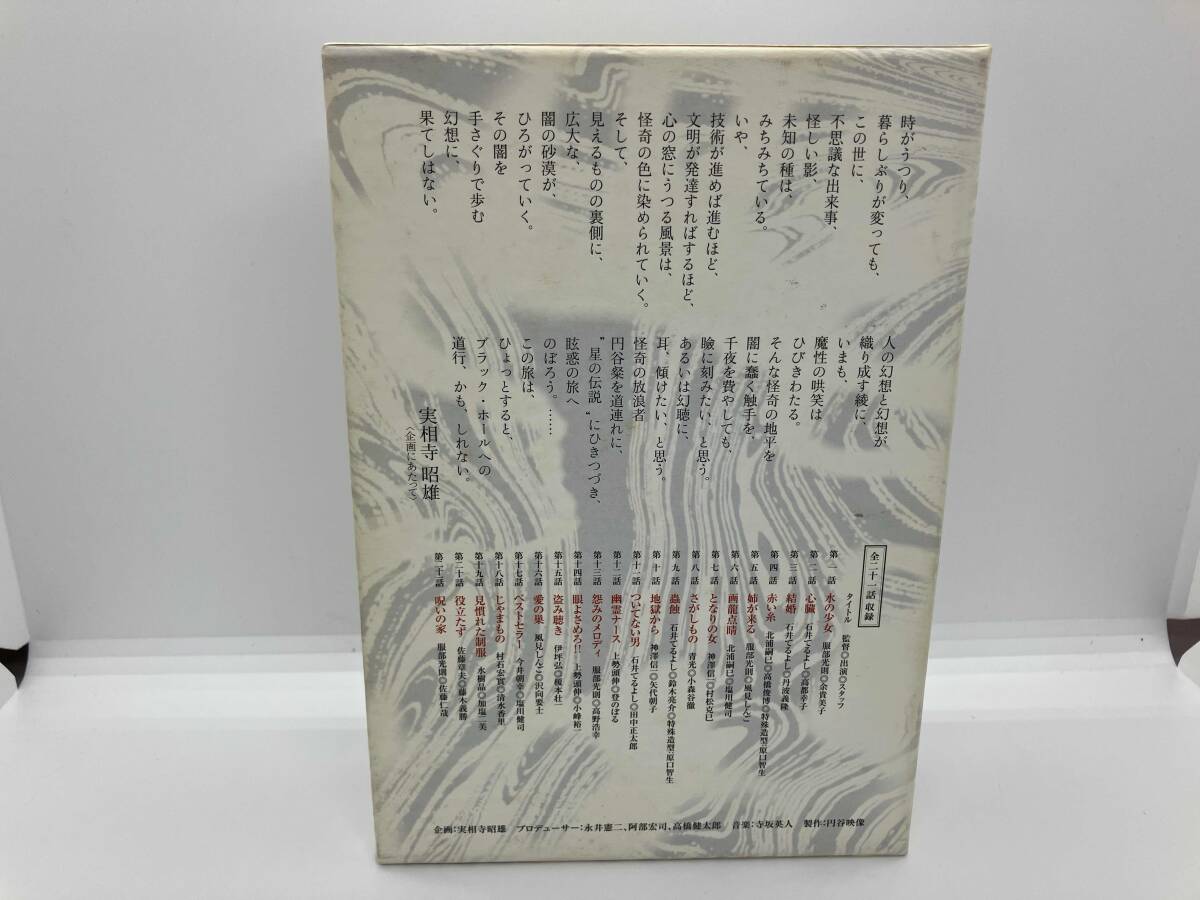 時がうつり、
暮らしぶりが変っても、
この世に、
不思議な出来事、
怪しい影、
未知の種は、
みちみちている。
いや、
技術が進めば進むほど、
文明が発達すればするほど、
心の窓にうつる風景は、
怪奇の色に染められていく。
そして、
見えるものの裏側に、
広大な、
闇の砂漠が、
ひろがっていく。
その闇を
手さぐりで歩む
幻想に、
果てしはない。
人の幻想と幻想が
織り成す綾に、
いまも、
魔性の哄笑は
ひびきわたる。
そんな怪奇の地平を
闇に蠢く触手を、
千夜を費やしても、
瞼に刻みたい、と思う。
あるいは幻聴に、
耳、傾けたい、と思う。
怪奇の放浪者
円谷粲を道連れに、
〝星の伝説〟にひきつづき、
眩惑の旅へ
のぼろう。……
この旅は、
ひょっとすると、
ブラック・ホールへの
道行、かも、しれない。
実相寺 昭雄
〈企画にあたって〉
全二十一話 収録
タイトル 監督◎出演◎スタッフ
第一話 水の少女 服部光則◎余貴美子
第二話 心臓 石井てるよし◎高都幸子
第三話 結婚 石井てるよし◎丹波義隆
第四話 赤い糸 北浦嗣巳◎高橋俊博◎特殊造型原口智生
第五話 姉が来る 服部光則◎風見しんご
第六話 画龍点睛 北浦嗣巳◎塩川健司
第七話 となりの女 神澤信一◎村松克巳
第八話 さがしもの 青光◎小森谷徹
第九話 蟲蝕 石井てるよし◎鈴木亮介◎特殊造型原口智生
第十話 地獄から 神澤信一◎矢代朝子
第十一話 ついてない男 石井てるよし◎田中正太郎
第十二話 幽霊ナース 上勢頭伸◎登のぼる
第十三話 怨みのメロディ 服部光則◎高野浩幸
第十四話 眼よさめろ!! 上勢頭伸◎小峰裕一
第十五話 盗み聴き 伊坪弘◎榎本壮一
第十六話 愛の巣 風見しんご◎沢向要士
第十七話 ベストセラー 今井朝幸◎塩川健司
第十八話 じゃまもの 村石宏實◎清水香里
第十九話 見慣れた制服 水樹晶◎加塩二美
第二十話 役立たず 佐藤章夫◎藤木義勝
第二十一話 呪いの家 服部光則◎佐藤仁哉
企画:実相寺昭雄 プロデューサー:永井憲二、阿部宏司、高橋健太郎 音楽:寺坂英人 製作:円谷映像